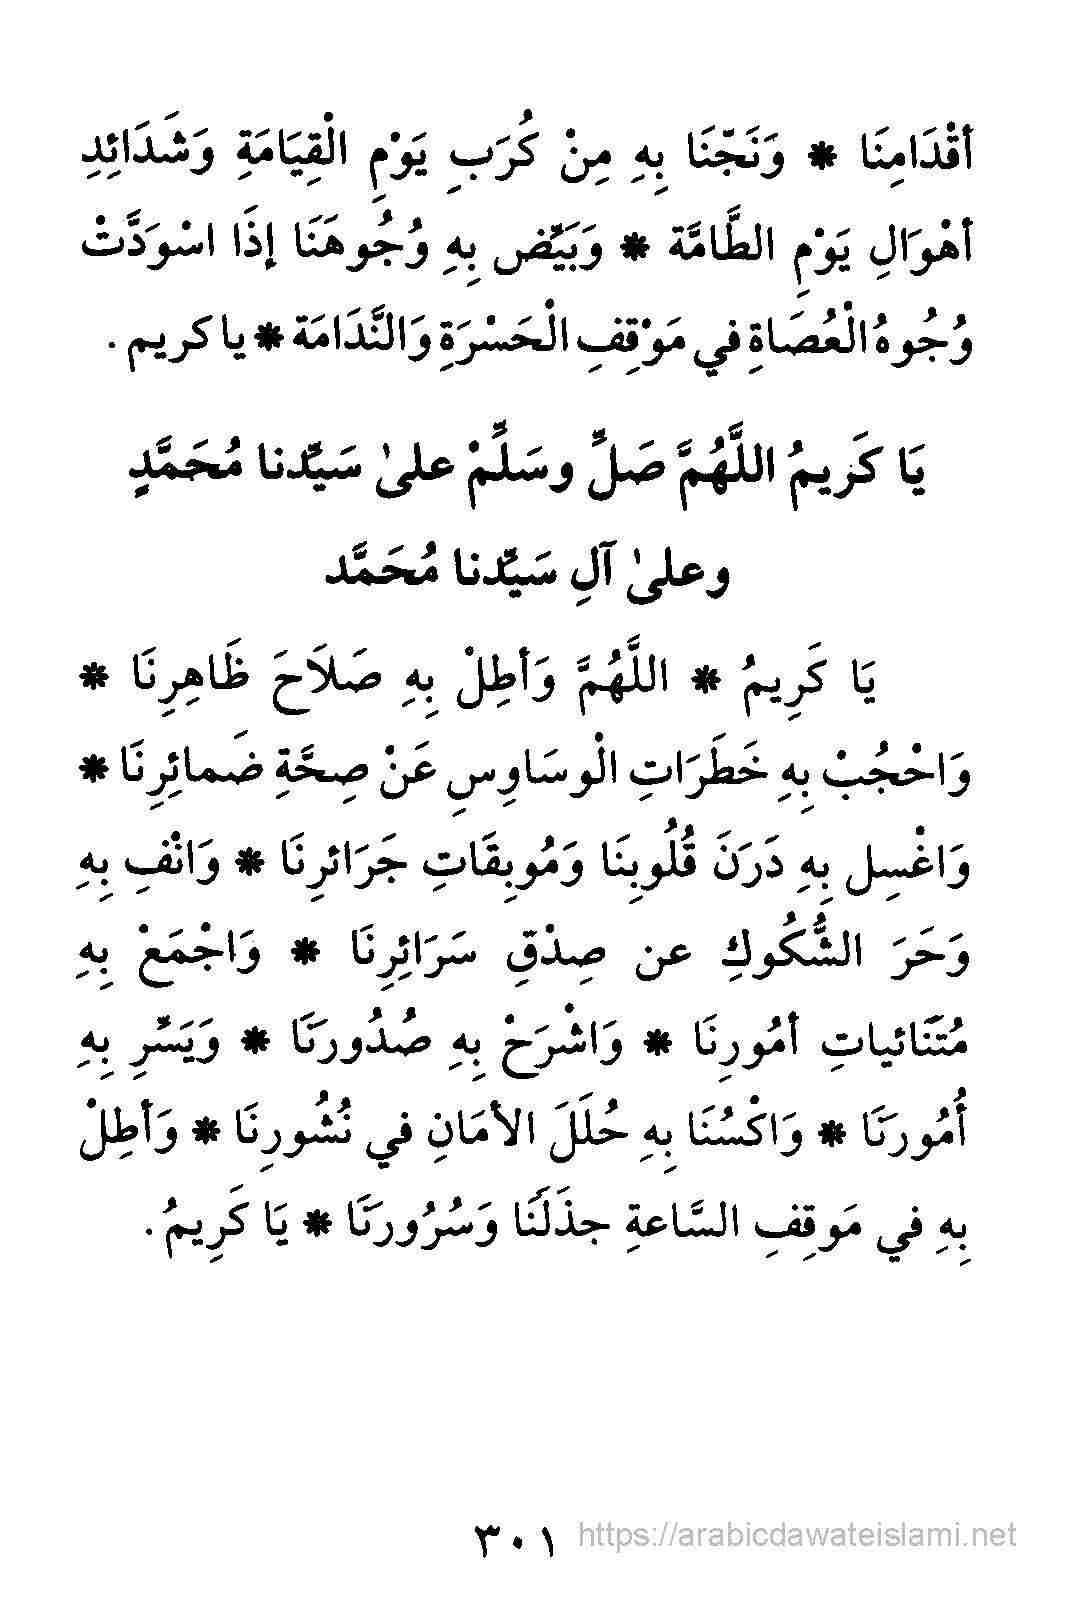 أقْدَامِنَا * وَنَجِّنَا بِهِ مِنْ كُرَبِ يَوْمِ الْقِيَامَةِ وَشَدَائِدِ
أهْوَالِ يَوْمِ الطَّامَّة * وَبَيِّض بِهِ وُجُوهَنَا إذَا اسْوَدَّتْ
وُجُوهُ الْعُصَاةِ في مَوْقِفِ الْحَسْرَةِ وَالنَّدَامَة * يا كريم .
يَا كَرِيمُ اللَّهُمَّ صَلِّ وسَلِّمْ علىٰ سَيِّدنا مُحَمَّدٍ
وعلىٰ آلِ سَيِّدنا مُحَمَّد
يَا كَرِيمُ * اللَّهُمَّ وَأطِلْ بِهِ صَلَاحَ ظَاهِرِنَا *
وَاحْجُبْ بِهِ خَطَرَاتِ الْوسَاوِسِ عَنْ صِحَّةِ ضَمائِرِنَا *
وَاغْسِل بِهِ دَرَنَ قُلُوبِنَا وَمُوبِقَاتِ جَرَائرِنَا * وَانْفِ بِهِ
وَحَرَ الشُّكُوكِ عن صِدْقِ سَرَائِرِنَا * وَاجْمَعْ بِهِ
مُتَنَائياتِ أمُورِنَا * وَاشْرَحْ بِهِ صُدُورَنَا * وَيَسِّرِ بِهِ
أُمُورَنَا * وَاكْسُنَا بِهِ حُلَلَ الأمَانِ في نُشُورِنَا * وَأطِلْ
بِهِ في مَوقِفِ السَّاعةِ جذَلَنَا وَسُرُورَنَا * يَا كَرِيمُ .
٣٠١ https://arabicdawateislami.net